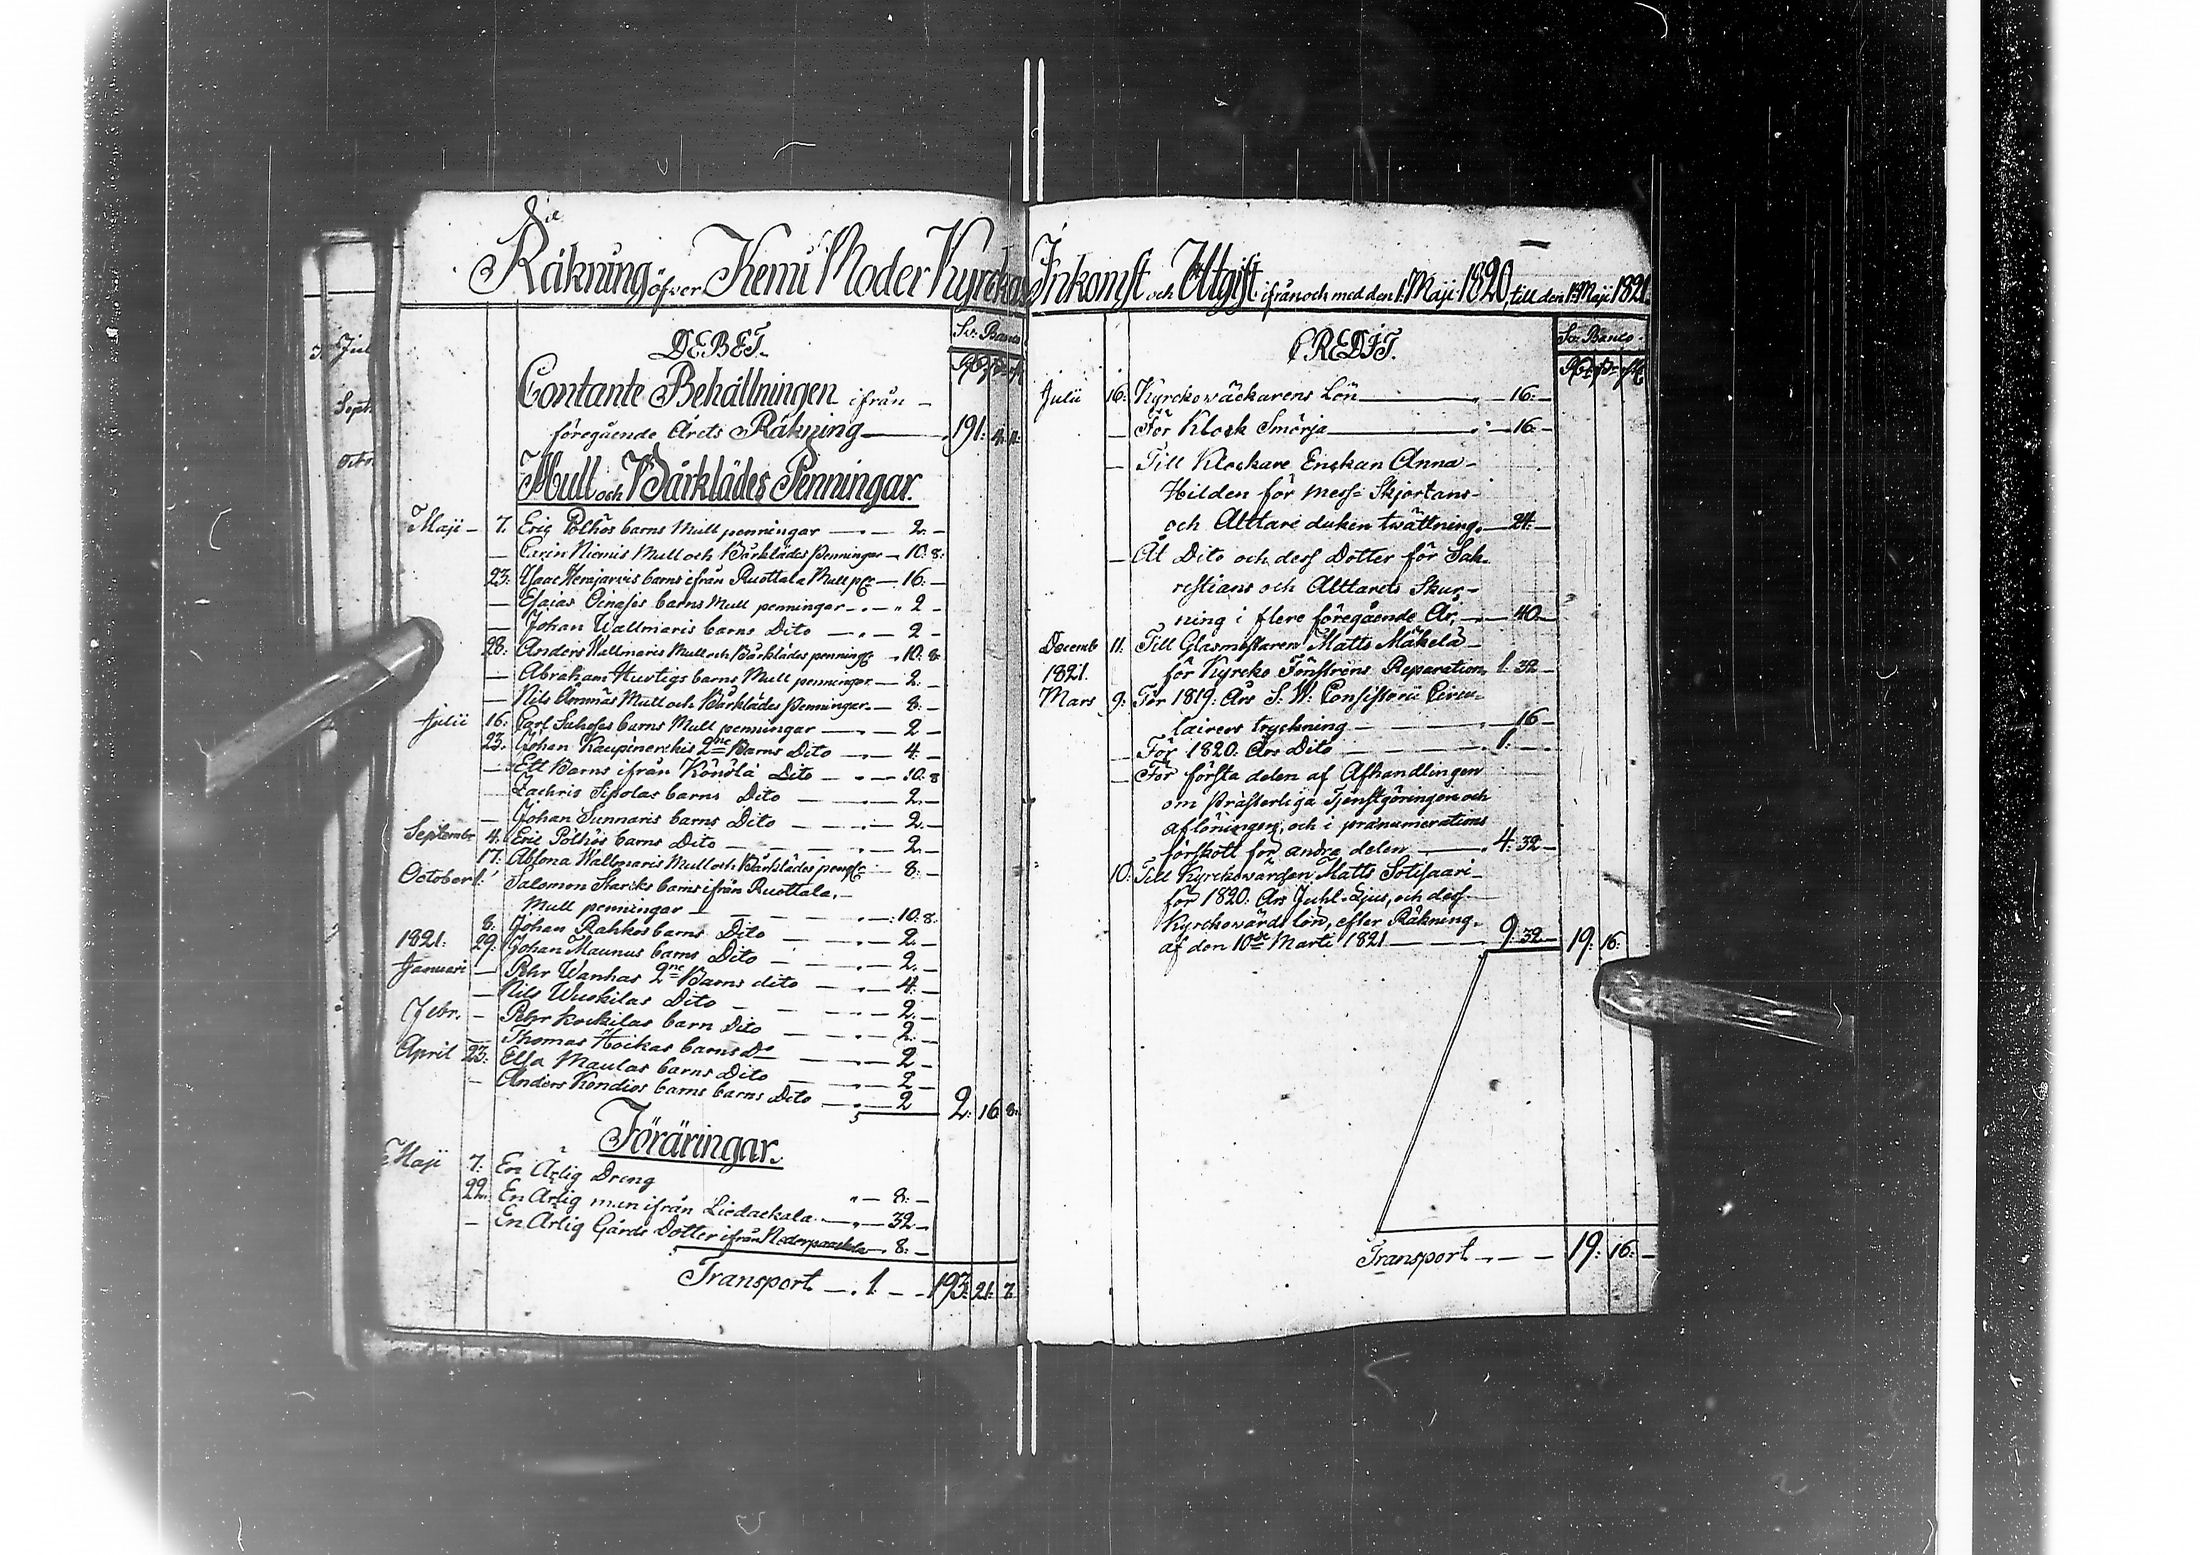 Räkning öfver Kemi Moder Kyrckas Inkomst och Utgift ifrån och med den 1. Maji 1820, till den 1. Maji 1821
DEBET.
Sv: Banco
Contante Behållningen ifrån
föregående Årets Räkning 191: 4: 11:
Mull och Bårklädes Penningar.
Maji 7. Eric Pölhös barns Mull penningar 2.
Carin Niemis Mull och Bårklädes Penningar 10: 8:
23: Isaac Kemjarvis barns ifrån Ruottala Mull pgr 16.
Esaias Oinasis barns Mull penningar 2
Johan Wallmaris barns Dito 2
28: Anders Wallmaris Mull och Bårklädes penningr 10: 8:
Abraham Hurtigs barns Mull penningar 2.
Nils Mull och Bårklädes Penningar 8:
Julii 16: Carl barns Mull penningar 2
23. Johan Kaupinerckis 2ne Barns Dito 4.
Ett Barns ifrån Könölä Dito 10. 8
Zachris Sipolas barns Dito 2.
Johan Sunnaris barns Dito 2.
Septembr 4. Eric Pölhös barns Dito 2.
17. Wallmaris Mull och Bårklädes pengr 8:
October 1. Salomon Starcks barns ifrån Ruottala
Mull penningar 10: 8:
8: Johan Rahkos barns Dito 2.
1821. 29: Johan Maunus barns Dito 2.
Januari Pehr Wanhas 2ne Barns dito 4.
Nils Wuokilas Dito 2.
Febr. Pehr Kockilas barn Dito 2.
Thomas Hockas barns Do 2
April 23: Elsa Maulas barns Dito 2
Anders Kondios barns barns Dito 2 2: 16 8:
Föräringar.
Maji 7: En Ärlig Dreng 8:
22. En Ärlig man ifrån Liedackala 32
En Ärlig Gårds Dotter ifrån Nederpaackola 8:
Transport 1. 193: 21: 7.
CREDIT.
Sv: Banco
Julii 16: Kyrckowäckarens Lön 16:
För Klock Smörja 16:
Till Klockare Enckan Anna
Hilden för mess-Skjortans
och Alttare duken twättning 24.
Åt Dito och dess Dotter för Sak-
restians och Alttarets Skur-
ning i flere föregående År, 40.
Decemb 11. Till Glasmästaren Matts Mäkelä
1821. för Kyrcko Fönstrens Reparation 1. 32
Mars 9: För 1819. Års S. W: Consistorii Circu-
lairers tryckning 16
För 1820. Års Dito 1.
För första delen af Afhandlingen
om Prästerliga Tjenstgöringen och
aflöningen, och i pranumerations
förskott för andra delen 4: 32
10: Till Kyrckowärden Matts Sotisaari
för 1820. Års Juhl-Ljus, och dess
Kyrckowärds lön, efter Räkning
af den 10de Marti 1821 9: 32 19: 16:
Transport 19: 16: